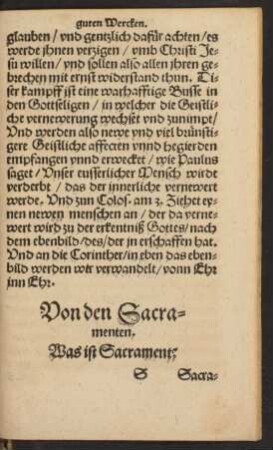 guten Wercken.
glauben / vnd gentzlich dafür achten / es
werde jhnen verzigen / vmb Christi Je-
su willen / vnd sollen also allen jhren ge-
brechen mit ernst widerstand thun. Di
ser kampff ist eine warhafftige Busse in
den Gottseligen / in welcher die Geistli-
che vernewerung wechset vnd zunimpt /
Vnd werden also newe vnd viel brünsti-
gere Geistliche affecten vnnd begierden
empfangen vnnd erwecket / wie Paulus
saget / Vnser eusserlicher Mensch wirde
verderbt / das der innerliche vernewert
werde. Vnd zun Colos. am 3. Ziehet ey-
nen newen menschen an / der da verne-
wert wird zu der erkentniß Gottes / nach
dem ebenbild / des / der jn erschaffen hat.
Vnd an die Corinther / in eben das eben-
bild werden wir verwandelt / vonn Ehr
inn Ehr.
Von den Sacra-
menten.
Was ist Sacrament?
S Sacra-